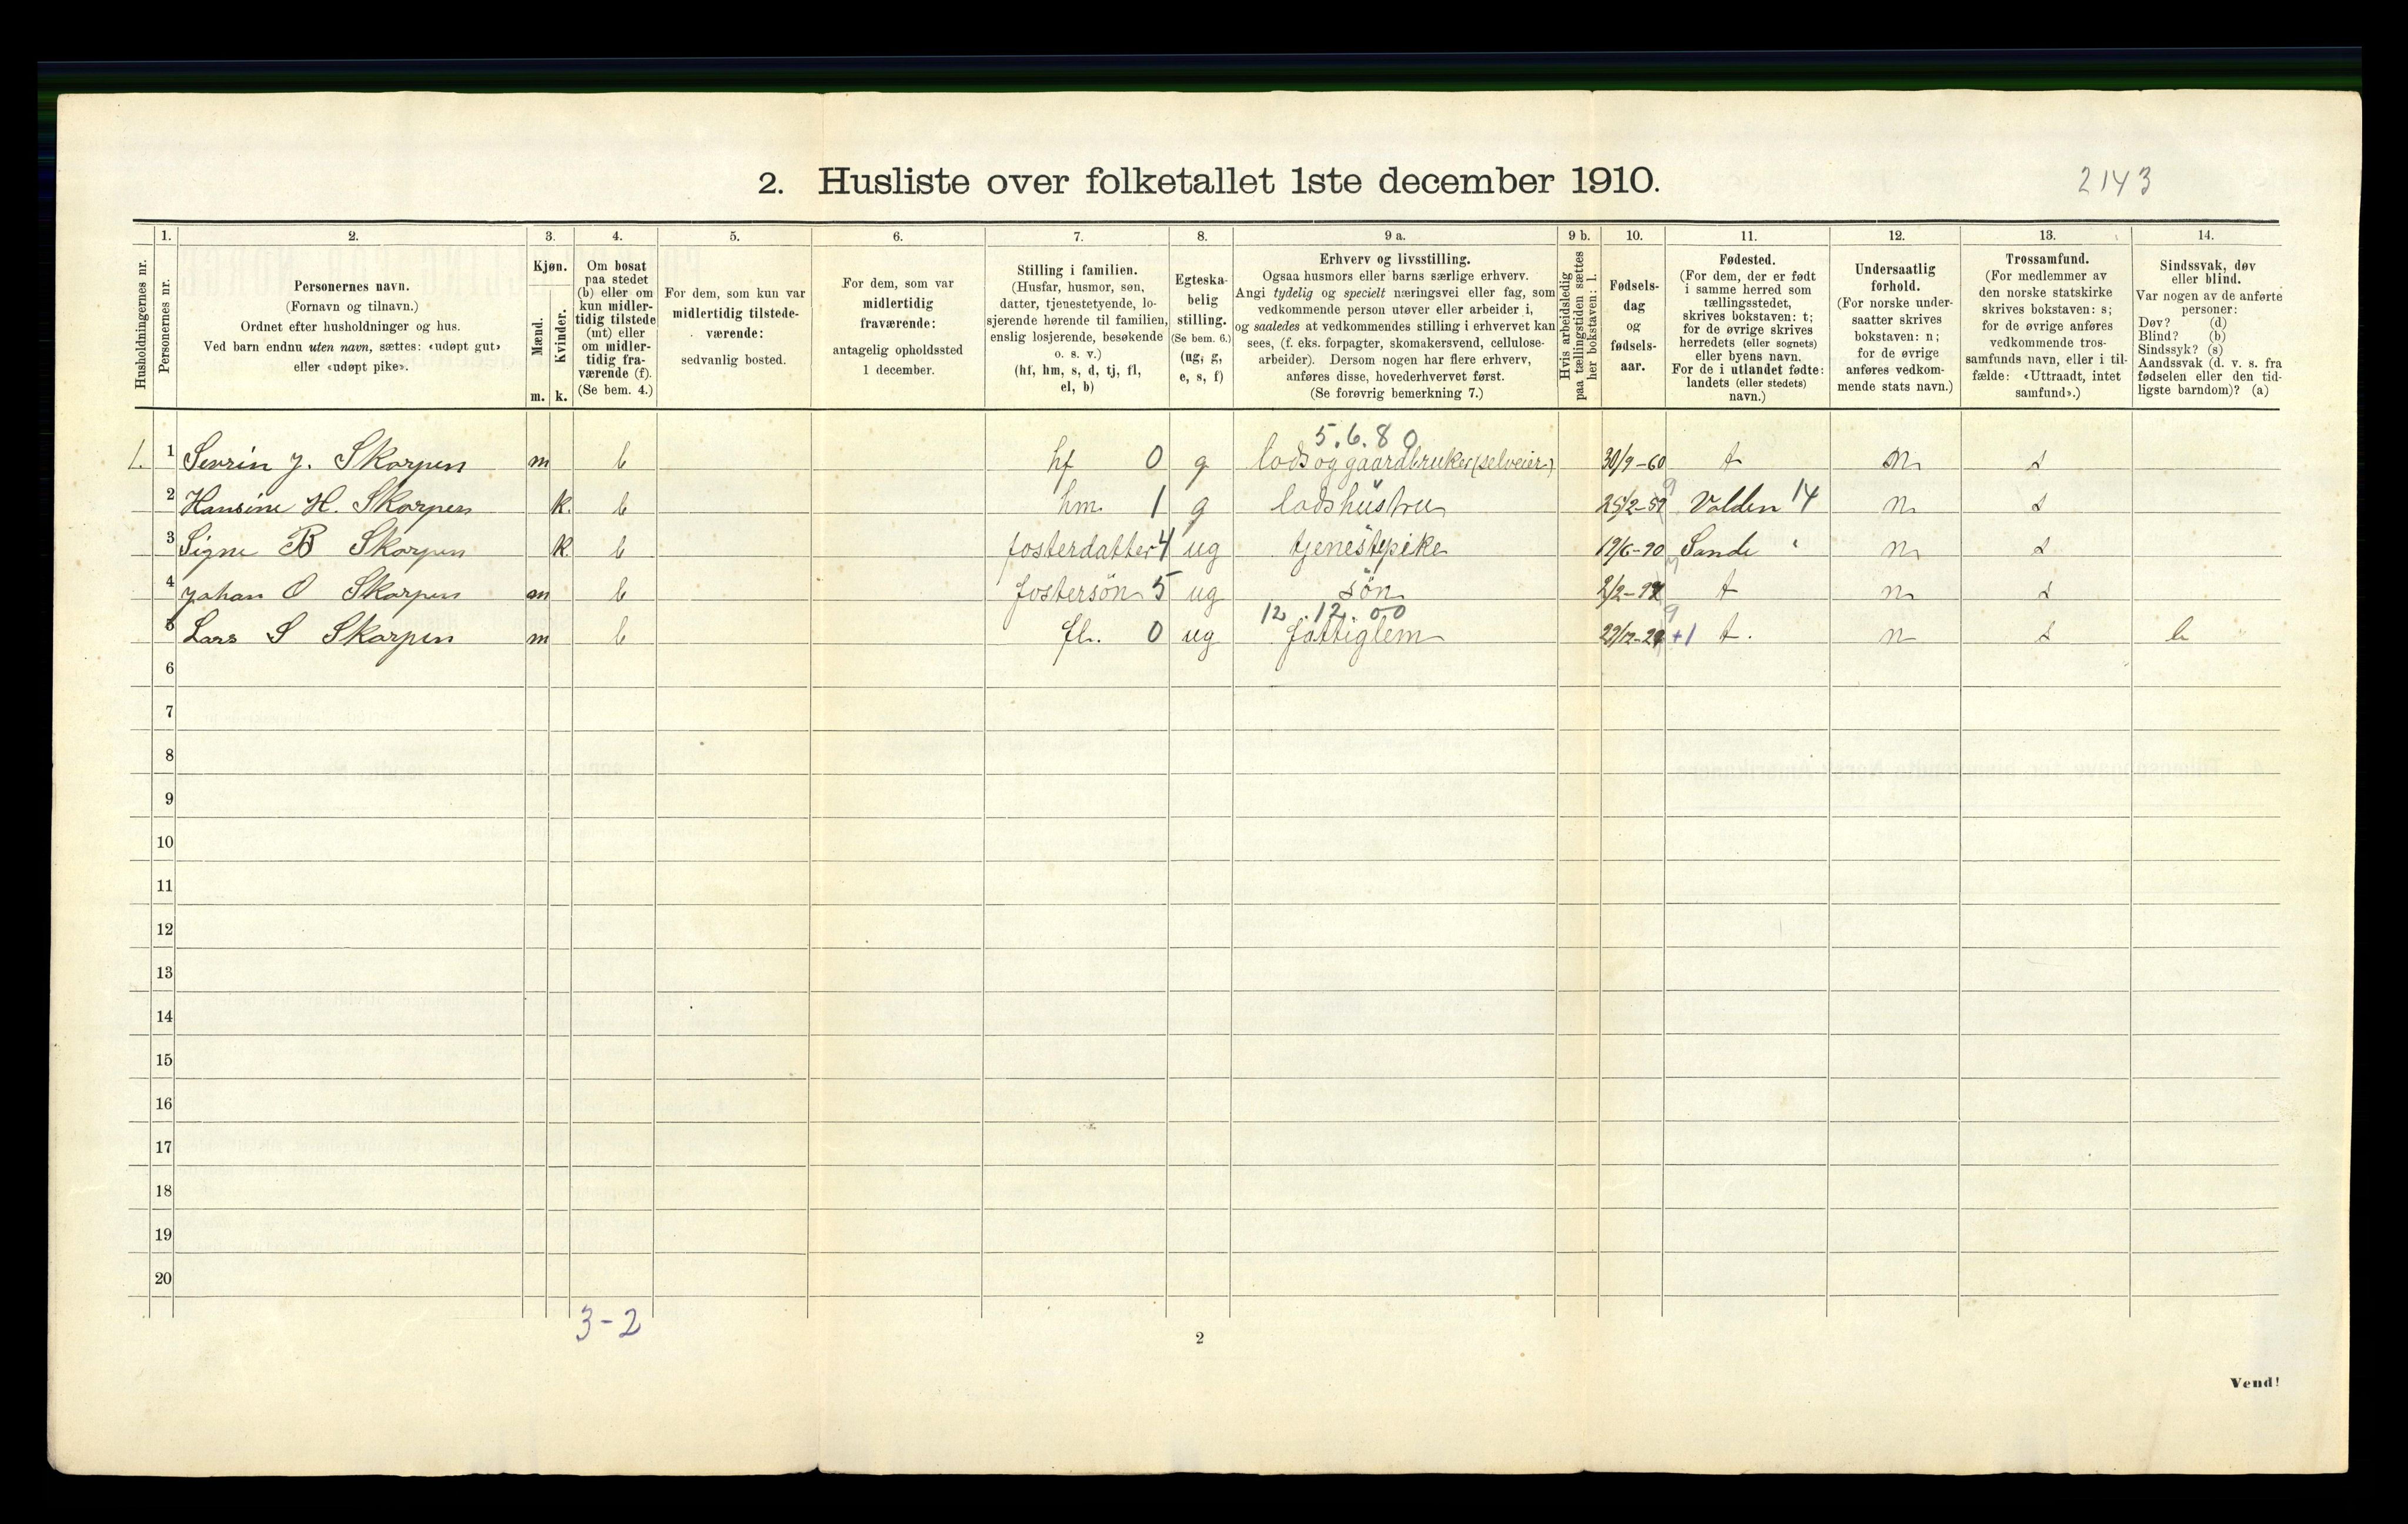 2. Husliste over folketallet 1ste december 1910.
2143
Husholdningernes nr.
1.
Personernes nr.
2.
Personernes navn.
(Fornavn og tilnavn.)
Ordnet efter husholdninger og hus.
Ved barn endnu uten navn, sættes: «udøpt gut»
eller «udøpt pike».
3.
Kjøn.
Mænd.
Kvinder.
m. k.
4.
Om bosat
paa stedet
(b) eller om
kun midler-
tidig tilstede
(mt) eller
om midler-
tidig fra-
værende (f).
(Se bem. 4.)
5.
For dem, som kun var
midlertidig tilstede-
værende:
sedvanlig bosted.
6.
For dem, som var
midlertidig
fraværende:
antagelig opholdssted
1 december.
7.
Stilling i familien.
(Husfar, husmor, søn,
datter, tjenestetyende, lo-
sjerende hørende til familien,
enslig losjerende, besøkende
o. s. v.)
(hf, hm, s, d, tj, fl,
el, b)
8.
Egteska-
belig
stilling.
(Se bem. 6.)
(ug, g,
e, s, f)
9 a.
Erhverv og livsstilling.
Ogsaa husmors eller barns særlige erhverv.
Angi tydelig og specielt næringsvei eller fag, som
vedkommende person utøver eller arbeider i,
og saaledes at vedkommendes stilling i erhvervet kan
sees, (f. eks. forpagter, skomakersvend, cellulose-
arbeider). Dersom nogen har flere erhverv,
anføres disse, hovederhvervet først.
(Se forøvrig bemerkning 7.)
9 b.
Hvis arbeidsledig
paa tællingstiden sættes
her bokstaven: l.
10.
Fødsels-
dag
og
fødsels-
aar.
11.
Fødested.
(For dem, der er født
i samme herred som
tællingsstedet,
skrives bokstaven: t;
for de øvrige skrives
herredets (eller sognets)
eller byens navn.
For de i utlandet fødte:
landets (eller stedets)
navn.)
12.
Undersaatlig
forhold.
(For norske under-
saatter skrives
bokstaven: n;
for de øvrige
anføres vedkom-
mende stats navn.)
13.
Trossamfund.
(For medlemmer av
den norske statskirke
skrives bokstaven: s;
for de øvrige anføres
vedkommende tros-
samfunds navn, eller i til-
fælde: «Uttraadt, intet
samfund».)
14.
Sindssvak, døv
eller blind.
Var nogen av de anførte
personer:
Døv? (d)
Blind? (b)
Sindssyk? (s)
Aandssvak (d. v. s. fra
fødselen eller den tid-
ligste barndom)? (a)
5.6.80
1. 1 Sevrin J. Skorpen m b hf 0 g lods og gaardbruker (selveier) 30/9-60 t n s
2 Hansine H. Skorpen k. b hm. 1 g lodshustru 25/2-59 Volden 14 n s
3 Signe B Skorpen k b fosterdatter 4 ug tjenestepike 19/6-90 Sande " n s
4 Johan O Skorpen m b fostersön 5 ug sön 2/2-97 t n s
12.12.00
5 Lars S Skorpen m b fl. 0 ug fattiglem 29/12-29 +1 t. n s b
6
7
8
9
10
11
12
13
14
15
16
17
18
19
20
3-2
2
Vend!